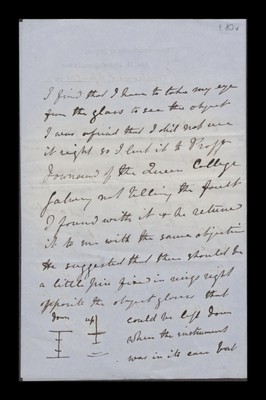 I find that I have to take my eye
from the glass to see the object
I was afraid that I did not use
it right so I lent it to Profr
Townsend of the Queens College
Galway not telling the fault
I found with it & he returned
it to me with the same objection
He suggested that there should be
a little pin fixed in rings right
opposite the object glasses that
down up could be left down
when the instrument
was in its case but